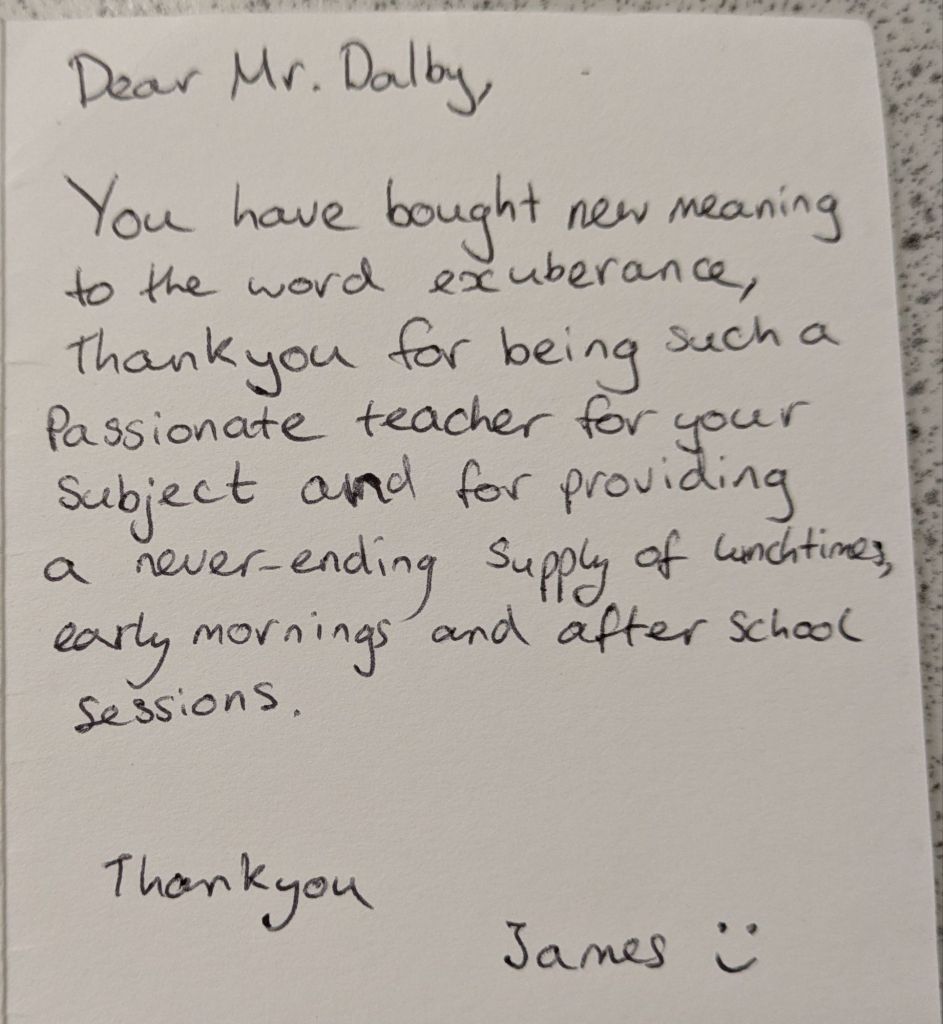 Dear Mr. Dalby,
You have bought new meaning
to the word exuberance,
Thankyou for being such a
Passionate teacher for your
Subject and for providing
a never-ending supply of lunchtimes,
early mornings and after school
sessions.
Thankyou
James :)